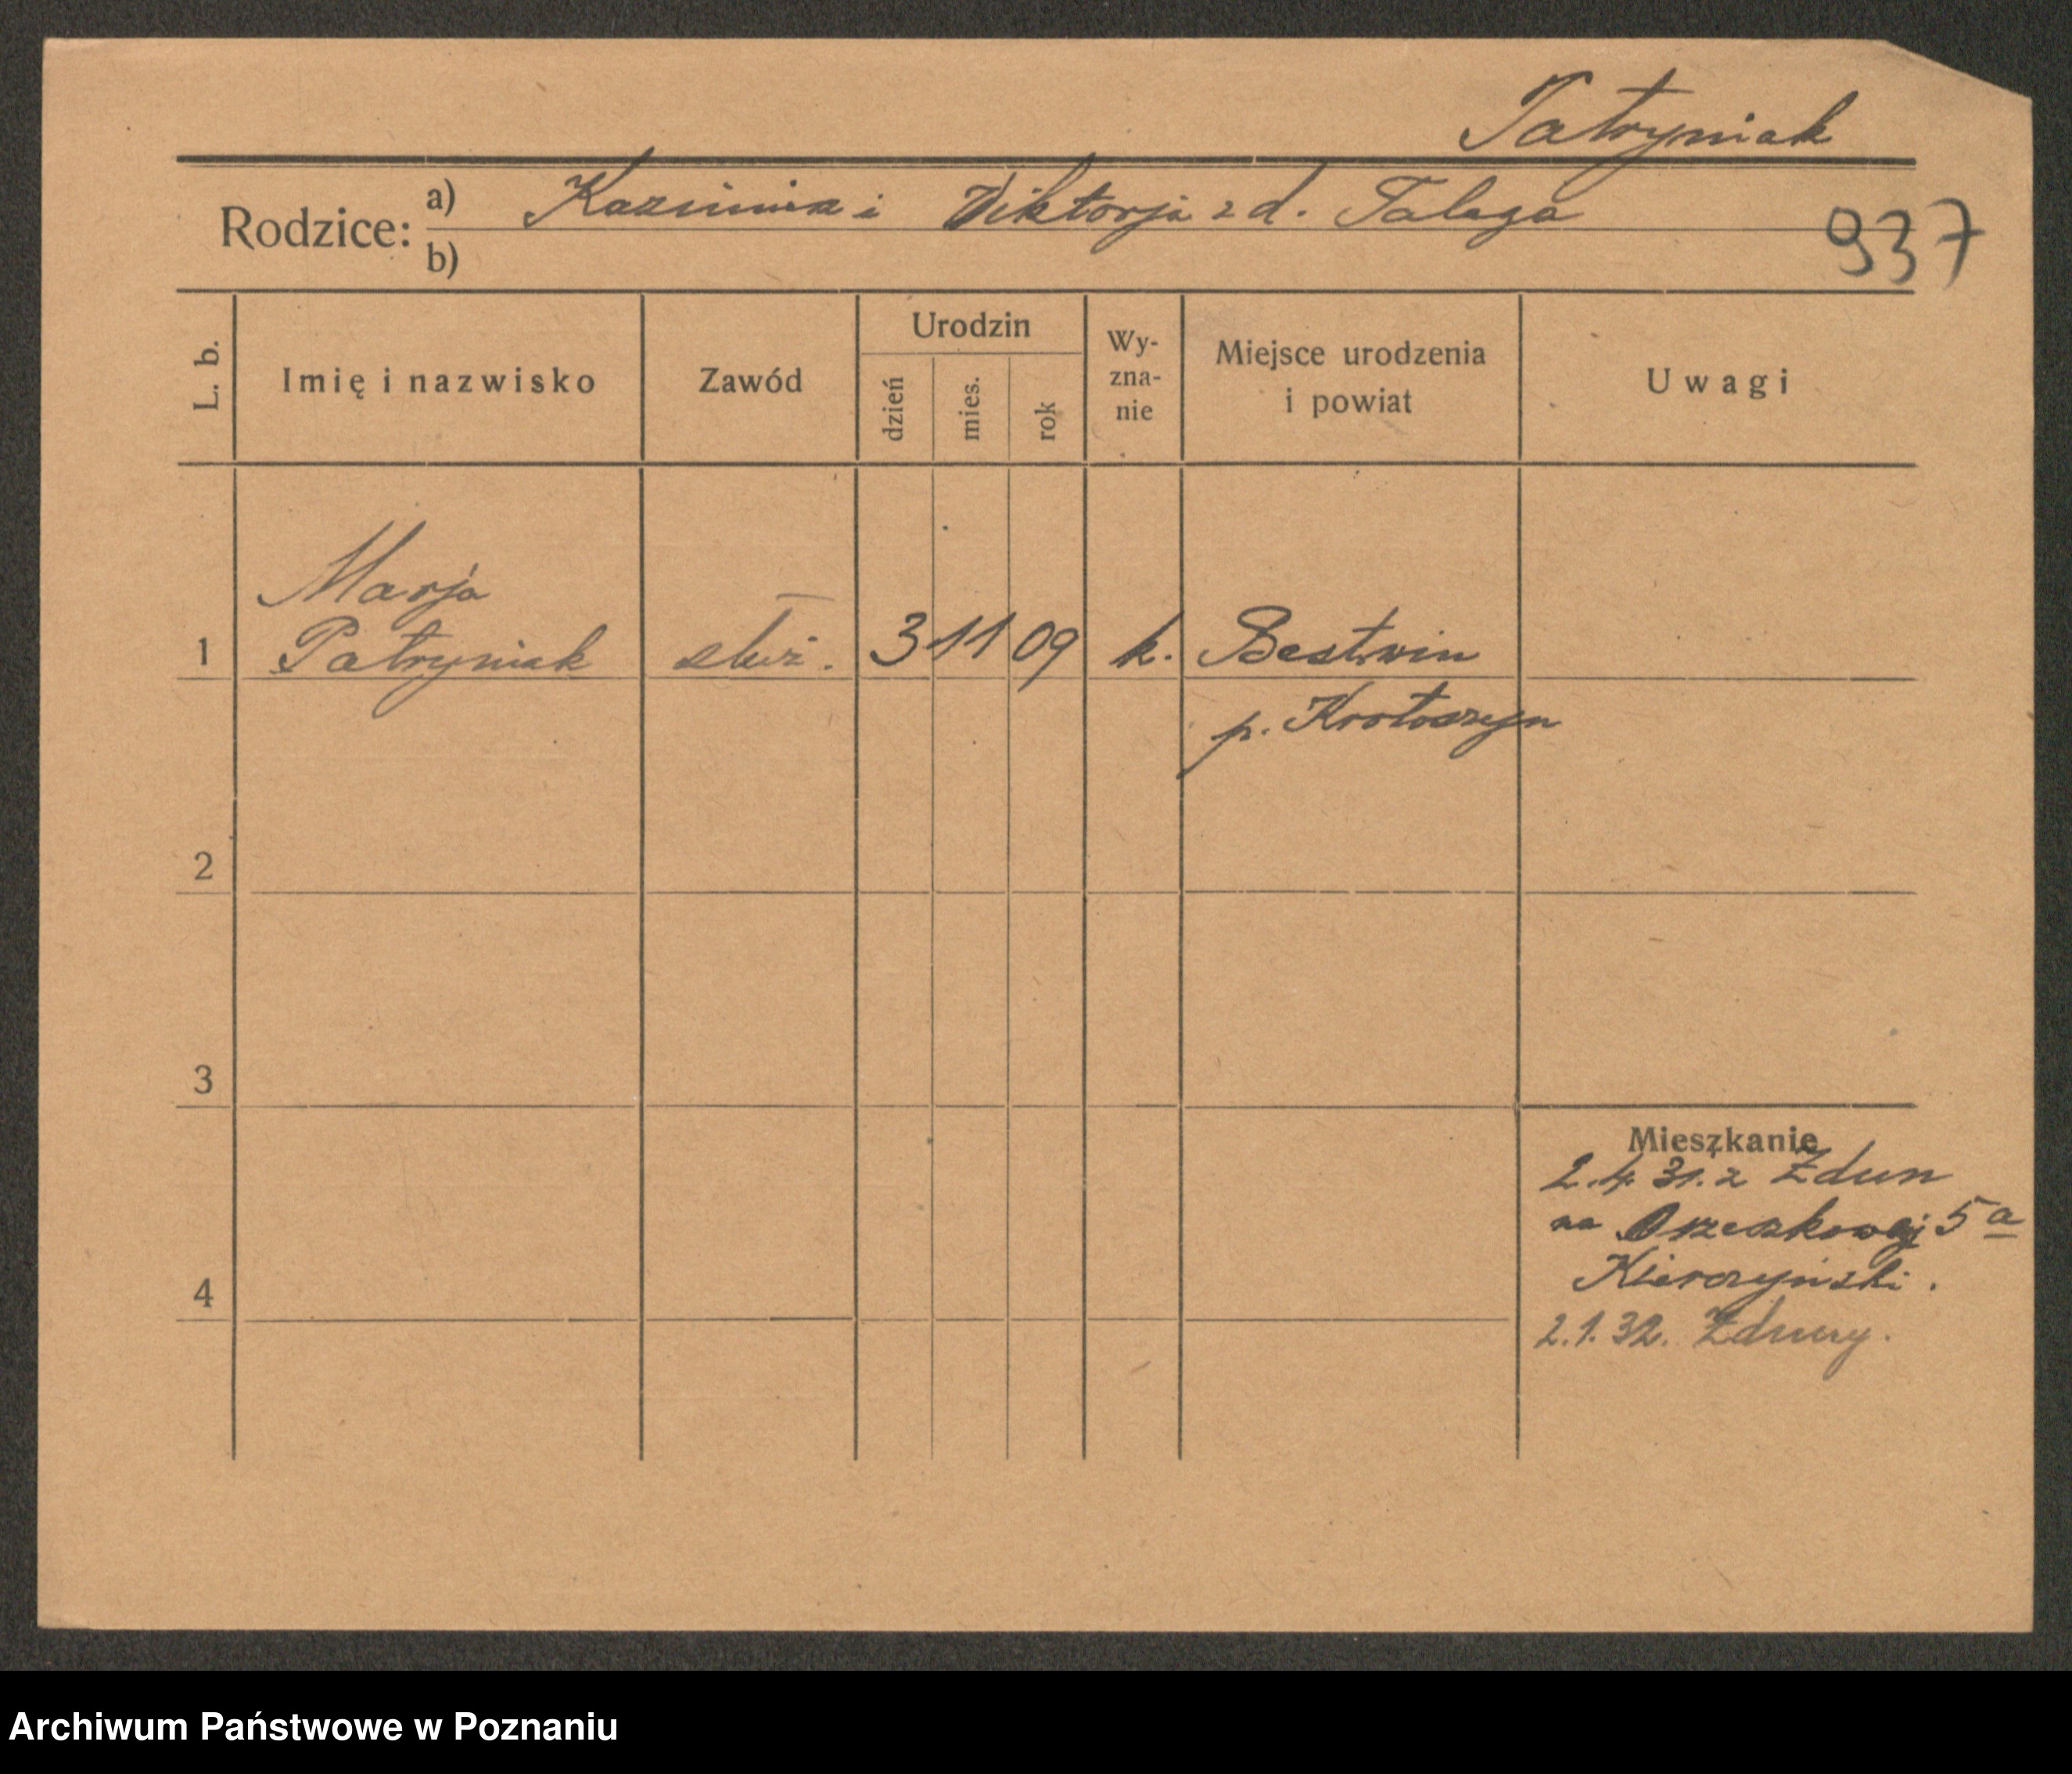 Patryniak
Rodzice: a) Kazimierz i Viktorja z d. Talaga
b)
937
L. b.
Imię i nazwisko
Zawód
Urodzin
dzień
mies.
rok
Wy-
zna-
nie
Miejsce urodzenia
i powiat
Uwagi
Marja
1 Patryniak służ. 3 11 09 k. Bestwin
p. Krotoszyn
2
3
Mieszkanie
2.4.31. z Zdun
na Orzeszkowej 5a
4 Kierczyński.
2.1.32. Zduny.
Archiwum Państwowe w Poznaniu